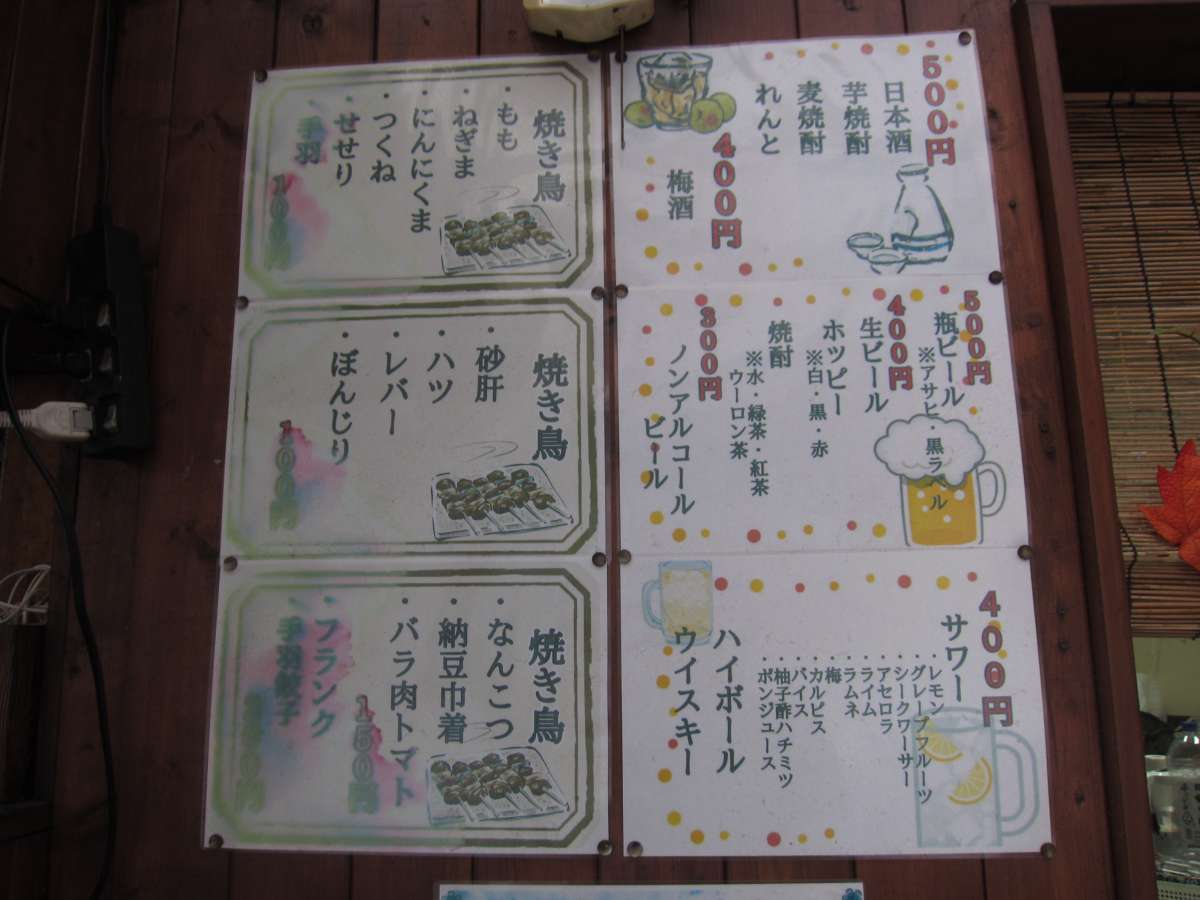 500円
日本酒
芋焼酎
麦焼酎
れんと
400円
梅酒
500円
瓶ビール
※アサヒ・黒ラベル
400円
生ビール
ホッピー
※白・黒・赤
焼酎
※水・緑茶・紅茶
ウーロン茶
300円
ノンアルコール
ビール
400円
サワー
・レモン
・グレープフルーツ
・シークワーサー
・アセロラ
・ライム
・ラムネ
・梅
・カルピス
・バイス
・柚子酢ハチミツ
・ポンジュース
ハイボール
ウイスキー
焼き鳥
・もも
・ねぎま
・にんにくま
・つくね
・せせり
・手羽
100円
焼き鳥
・砂肝
・ハツ
・レバー
・ぼんじり
100円
焼き鳥
・なんこつ
・納豆巾着
・バラ肉トマト
150円
・フランク
・手羽餃子